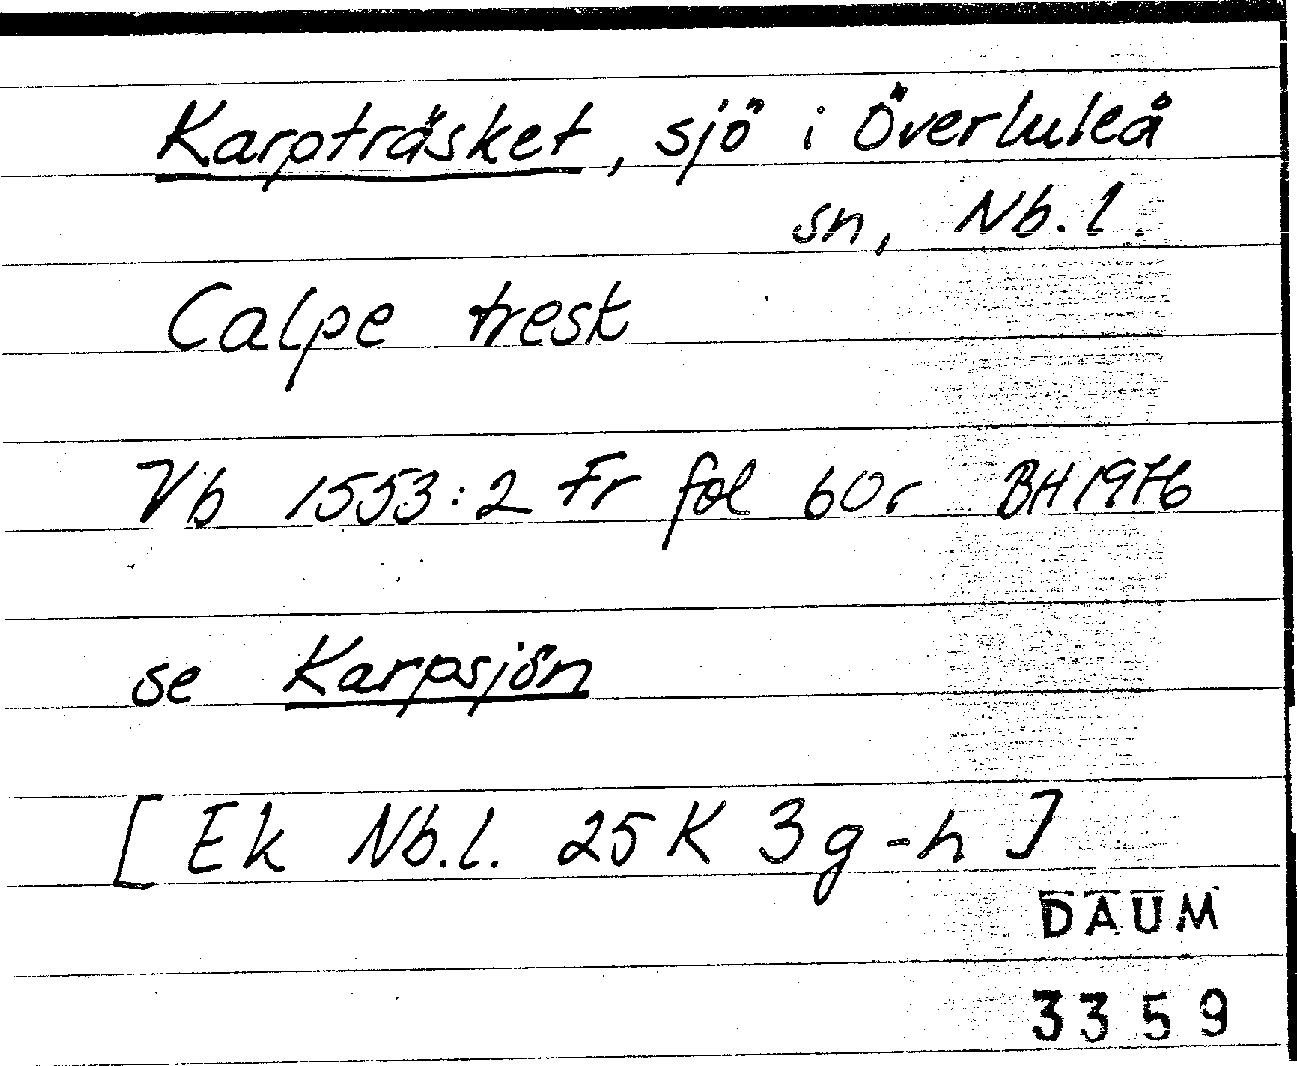 Karpträsket, sjö i Överluleå
sn, Nb.l.
Calpe tresk
Vb 1553:2 Fr fol 60r BH1976
se Karpsjön
[Ek Nb.l. 25K 3g-h]
DAUM
3359